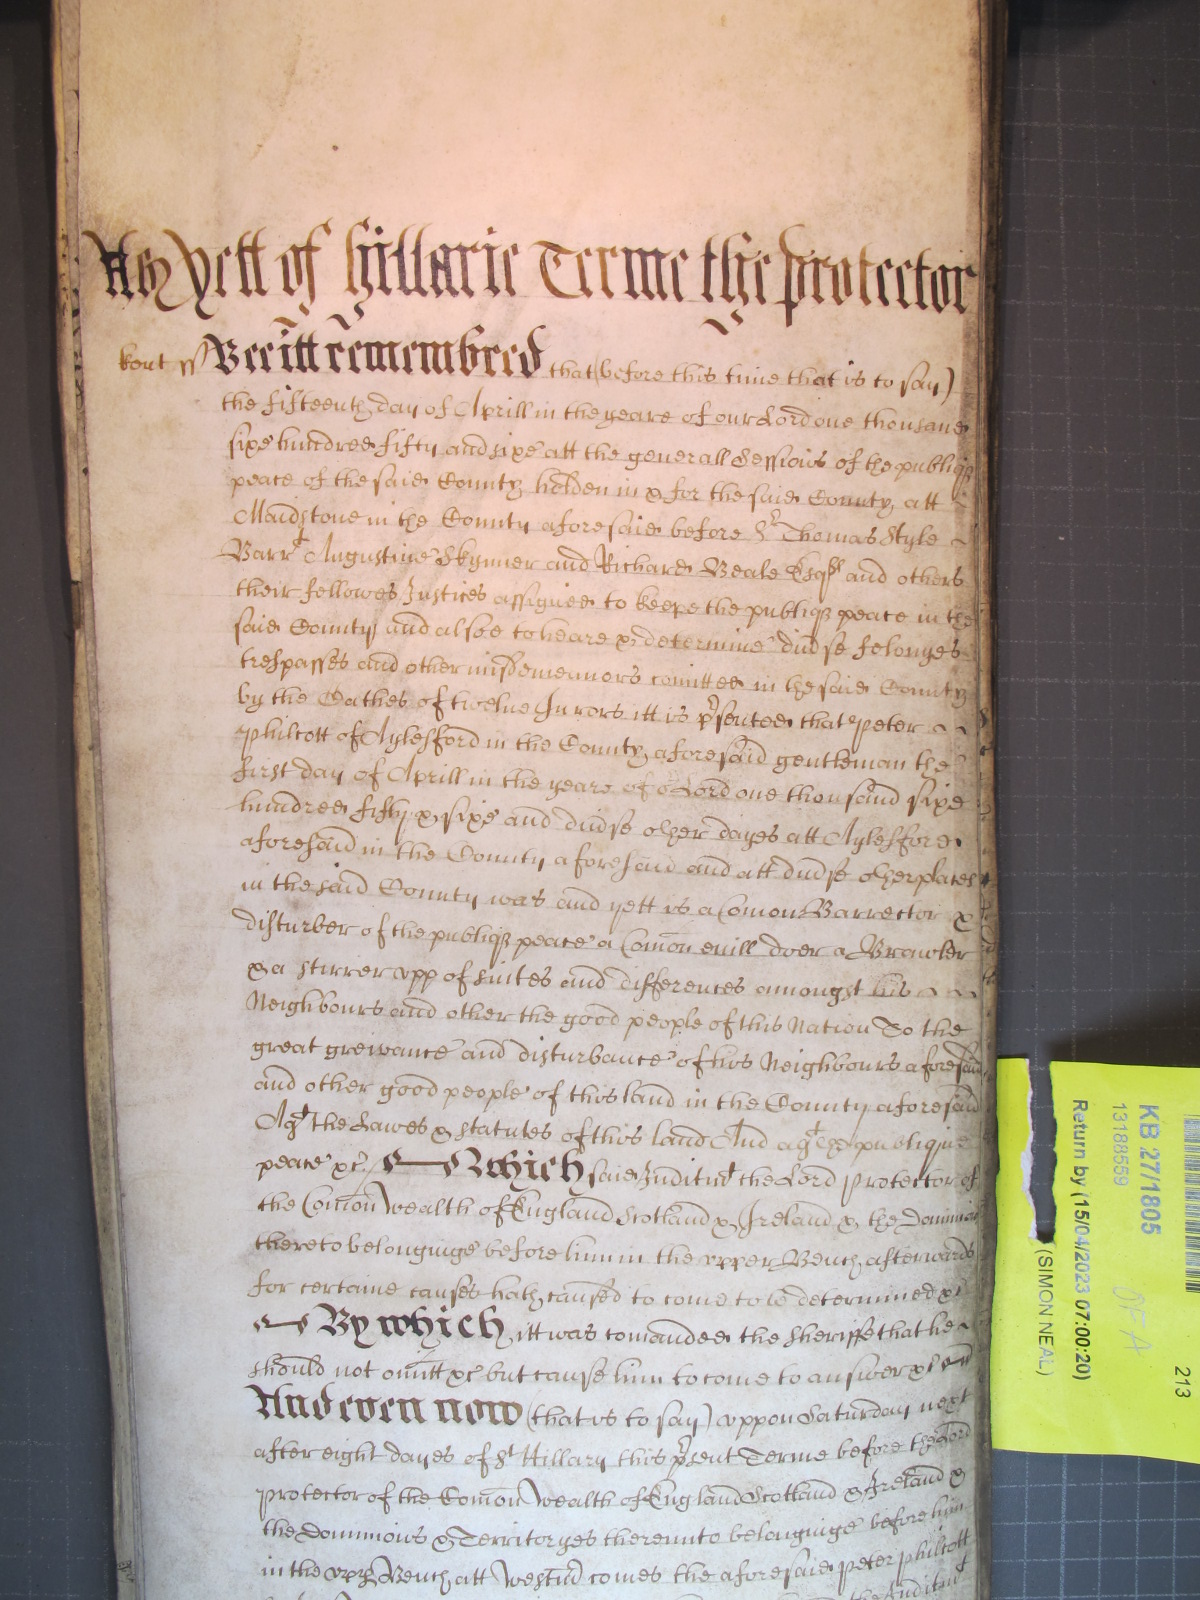 As Yett of Hillarie Terme the Protector
Kent ss Bee itt remembred that (before this time that is to say)
the fifteenth day of Aprill in the yeare of our Lord one thousand
sixe hundred fifty and sixe att the generall Sessions of the publiq
peace of the said County holden in & for the said County att
Maidstone in the County aforesaid before Sr Thomas Style
Barrt Augustine Skynner and Richard Beale Esqrs and others
their fellowes Justices assigned to keepe the publiq peace in the
said County and alsoe to heare & determine diuse felonyes
trespasses and other misdemeannors comitted in the said County
by the Oathes of twelue Jurors itt is psented that Peter
Philcott of Aylesford in the County aforesaid gentleman the
first day of Aprill in the yeare of or Lord one thousand sixe
hundred fifty & sixe and diuse other dayes att Aylesford
aforesaid in the County aforesaid and att diuse other places
in the said County was and yett is a Comon Barrector &
disturber of the publiq peace a Comon euill doer a Brawler
& a stirrer vpp of suites and differences amongst his
Neighbours and other the good people of this Nation To the
great greivance and disturbance of his Neighbours aforesaid
and other good people of this land in the County aforesaid
Agt the Lawes & statutes of this land And agt the publique
peace &c Which said Inditmt the Lord Protector of
the Comon Wealth of England Scotland & Ireland & the Dominions
thereto belonginge before him in the vpper Bench afterwards
for certaine causes hath caused to come to be determined &c
By which itt was comanded the Sheriffe that he
should not omitt &c but cause him to come to answer &c
And even now (that is to say) vppon Saturday next
after eight dayes of St Hillary this psent Terme before the Lord
Protector of the Comon Wealth of England Scotland & Ireland &
the Dominions & Territoryes thereunto belonginge before him
in the vpp Bench att Westm comes the aforesaid Peter Philcott
the Inditmt
KB 27/1805
13188559
Return by (15/04/2023 07:00:20)
(SIMON NEAL)
213